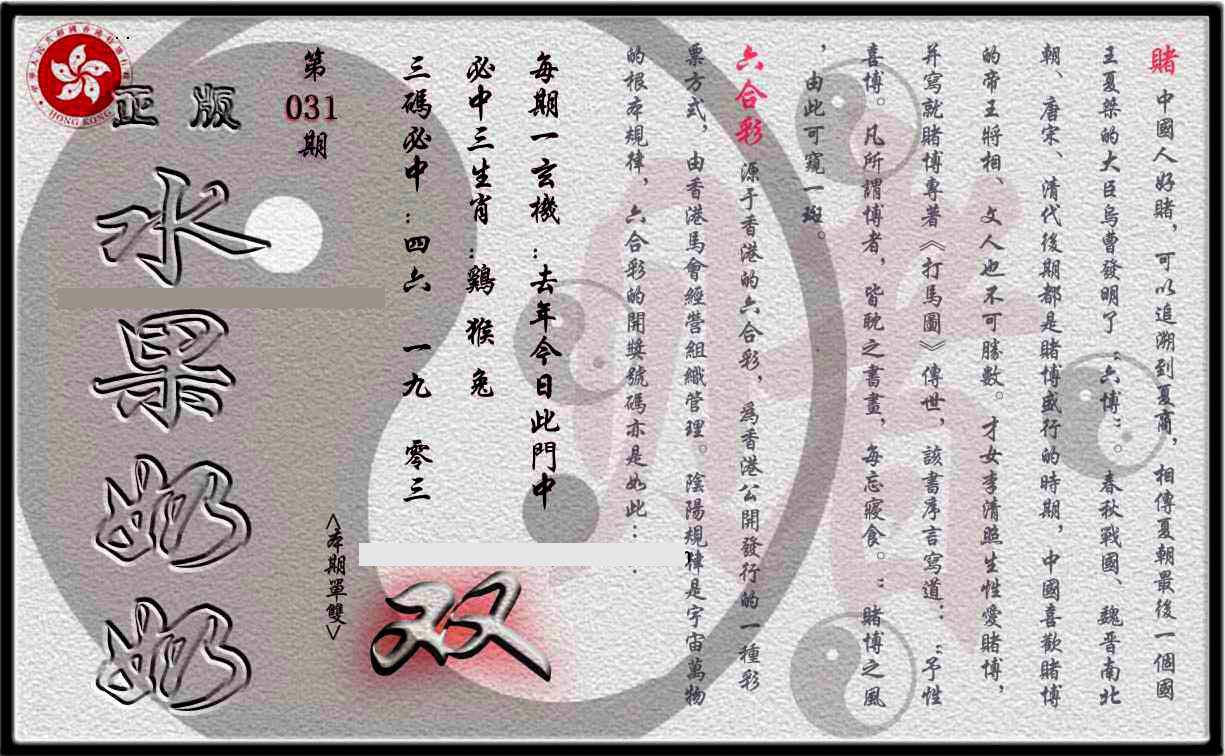 賭 中國人好賭，可以追溯到夏商，相傳夏朝最後一個國
王夏桀的大臣烏曹發明了"六博"。春秋戰國、魏晉南北
朝、唐宋、清代後期都是賭博盛行的時期，中國喜歡賭博
的帝王將相、文人也不可勝數。才女李清照生性愛賭博，
并寫就賭博專著《打馬圖》傳世，該書序言寫道："予性
喜博。凡所謂博者，皆耽之書畫，每忘寢食。"賭博之風
，由此可窺一斑。
六合彩 源于香港的六合彩，為香港公開發行的一種彩
票方式，由香港馬會經營組織管理。陰陽規律是宇宙萬物
的根本規律，六合彩的開獎號碼亦是如此：..
每期一玄機：去年今日此門中
必中三生肖：鷄 猴 兔
三碼必中：四六 一九 零三
<本期單雙>
双
第
031
期
正版
水果奶奶
HONG KONG